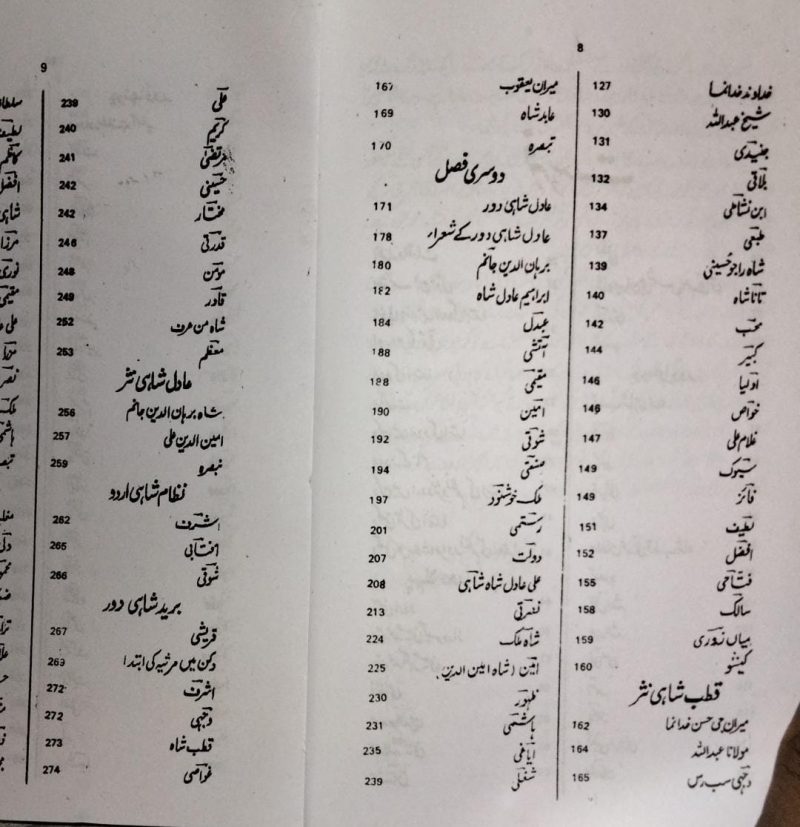 8
خداوند خدانما 127
شیخ عبداللہ 130
جنیدی 131
بلاقی 132
ابن نشاطی 134
طبعی 137
شاہ راجو حُسینی 139
تاناشاہ 140
محب 142
کبیر 144
اولیا 146
خواص 146
غلام علی 147
سیوک 149
فائز 149
لطیف 151
افضل 152
فتاحی 155
سالک 158
میاں نوری 159
کیشو 160
قطب شاہی نثر
میراں جی حسن خدانما 162
مولانا عبداللہ 164
وجہی سب رس 165
میراں یعقوب 167
عابد شاہ 169
تبصرہ 170
دوسری فصل
عادل شاہی دور 171
عادل شاہی دور کے شعراء 178
برہان الدین جانم 180
ابراہیم عادل شاہ 182
عبدل 184
آتشی 188
مقیمی 188
امین 190
شوقی 192
صنعتی 194
ملک خوشنود 197
رستمی 201
دولت 207
علی عادل شاہ شاہی 208
نصرتی 213
شاہ ملک 224
امین (شاہ امین الدین) 225
ظہور 230
ہاشمی 231
ایاغی 235
شغلی 239
9
علی 239
کریم 240
مرتضیٰ 241
حسینی 242
مختار 242
قدرتی 246
مومن 248
قادر 249
شاہ من عرف 252
معظم 253
عادل شاہی نثر
شاہ برہان الدین جانم 256
امین الدین علی 257
تبصرہ 259
نظام شاہی اردو
اشرف 262
آفتابی 265
شوقی 266
برید شاہی دور
قریشی 267
دکن میں مرثیہ کی ابتدا 269
اشرف 272
وجہی 272
قطب شاہ 273
غواصی 274